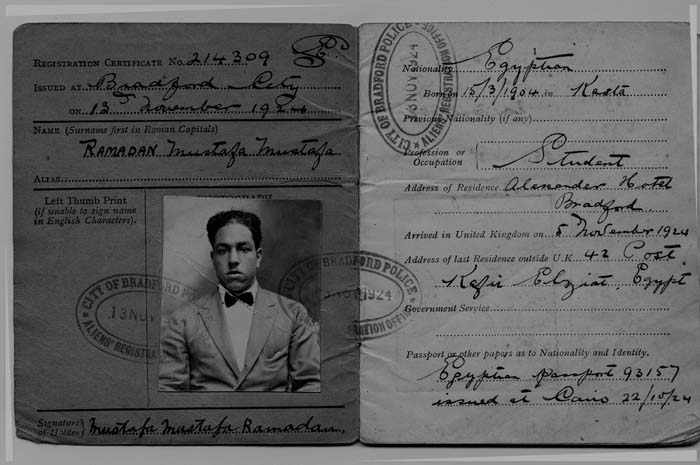 REGISTRATION CERTIFICATE No. 214309
ISSUED AT Bradford City
ON 13th November 1924
NAME (Surname first in Roman Capitals)
RAMADAN Mustafa Mustafa
ALIAS
Left Thumb Print
(if unable to sign name
in English Characters).
PHOTOGRAPH
CITY OF BRADFORD POLICE
13 NOV 1924
ALIENS' REGISTRATION OFFICE
Signature of Holder Mustafa Mustafa Ramadan.
CITY OF BRADFORD POLICE
13 NOV 1924
ALIENS' REGISTRATION OFFICE
Nationality Egyptian
Born on 15/3/1904 in Kasta
Previous Nationality (if any)
Profession or
Occupation Student
Address of Residence Alexander Hotel
Bradford.
Arrived in United Kingdom on 5 November 1924
Address of last Residence outside U.K. 42 Post
Kafir Elziat Egypt
Government Service
Passport or other papers as to Nationality and Identity.
Egyptian passport 93157
issued at Cairo 22/10/24